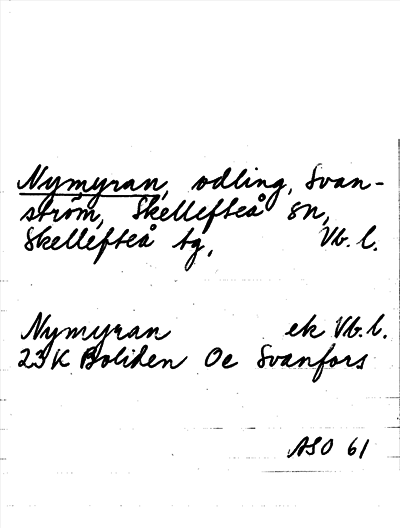 Nymyran, odling, Svan-
ström, Skellefteå sn,
Skellefteå tg, Vb. l.
Nymyran ek Vb. l.
23K Boliden Oc Svanfors
ASO 61